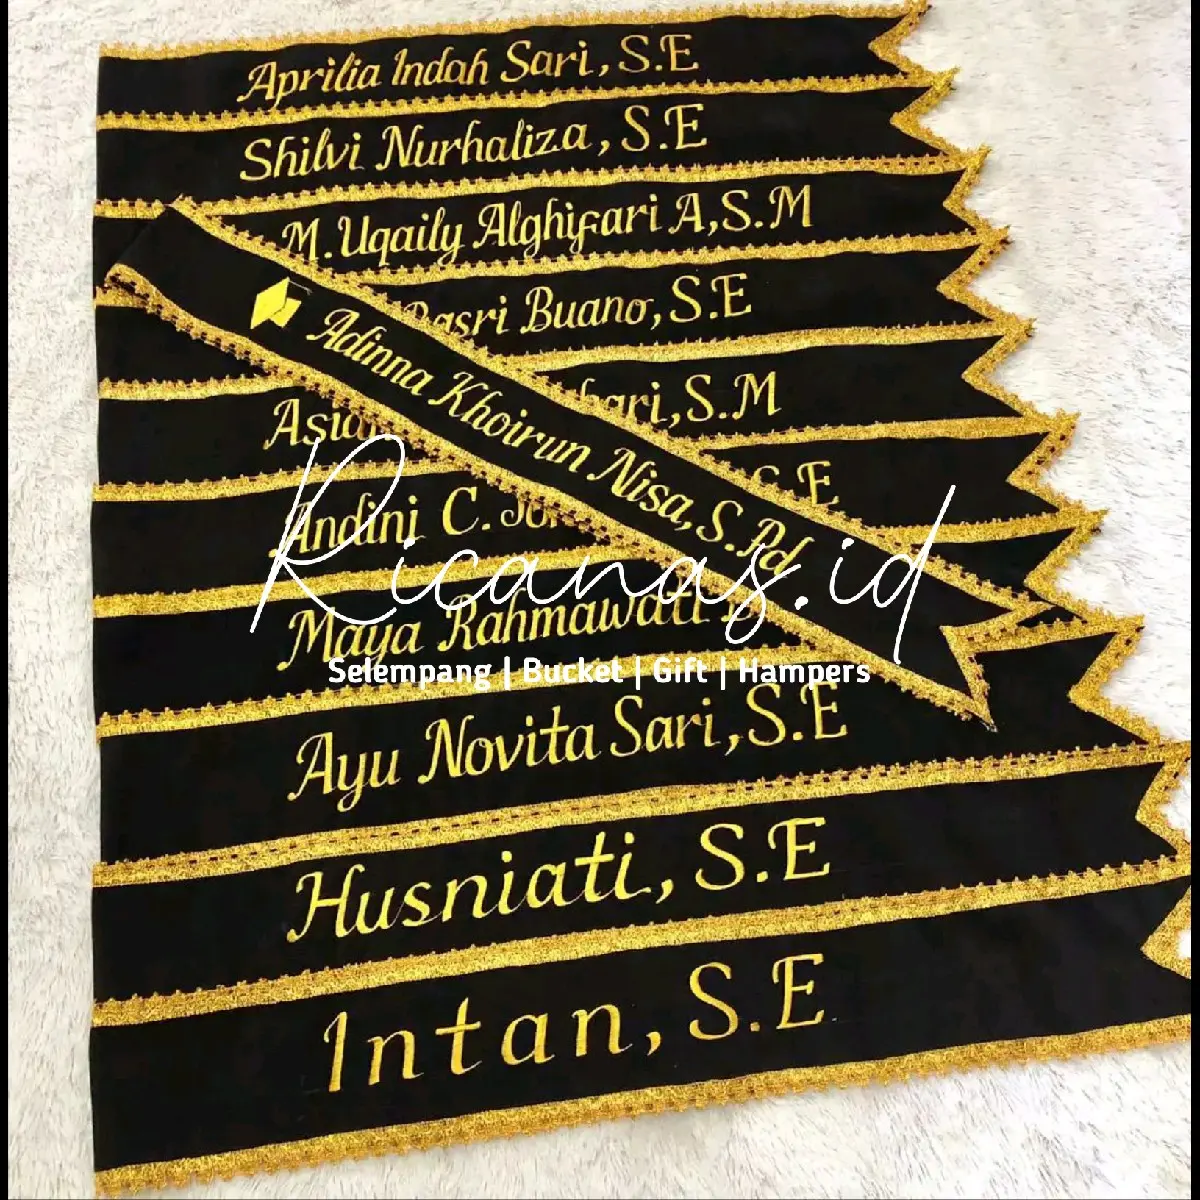 Aprilia Indah Sari, S.E
Shilvi Nurhaliza, S.E
M. Uqaily Alghifari A, S.M
Basri Buano, S.E
Adinna Khoirun Nisa, S.Pd
S.M
Andini C.
Maya Rahmawati
Ricanas.id
Selempang | Bucket | Gift | Hampers
Ayu Novita Sari, S.E
Husniati, S.E
Intan, S.E